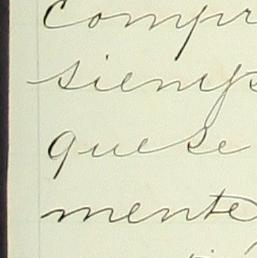 compr
siemp
quese
mente